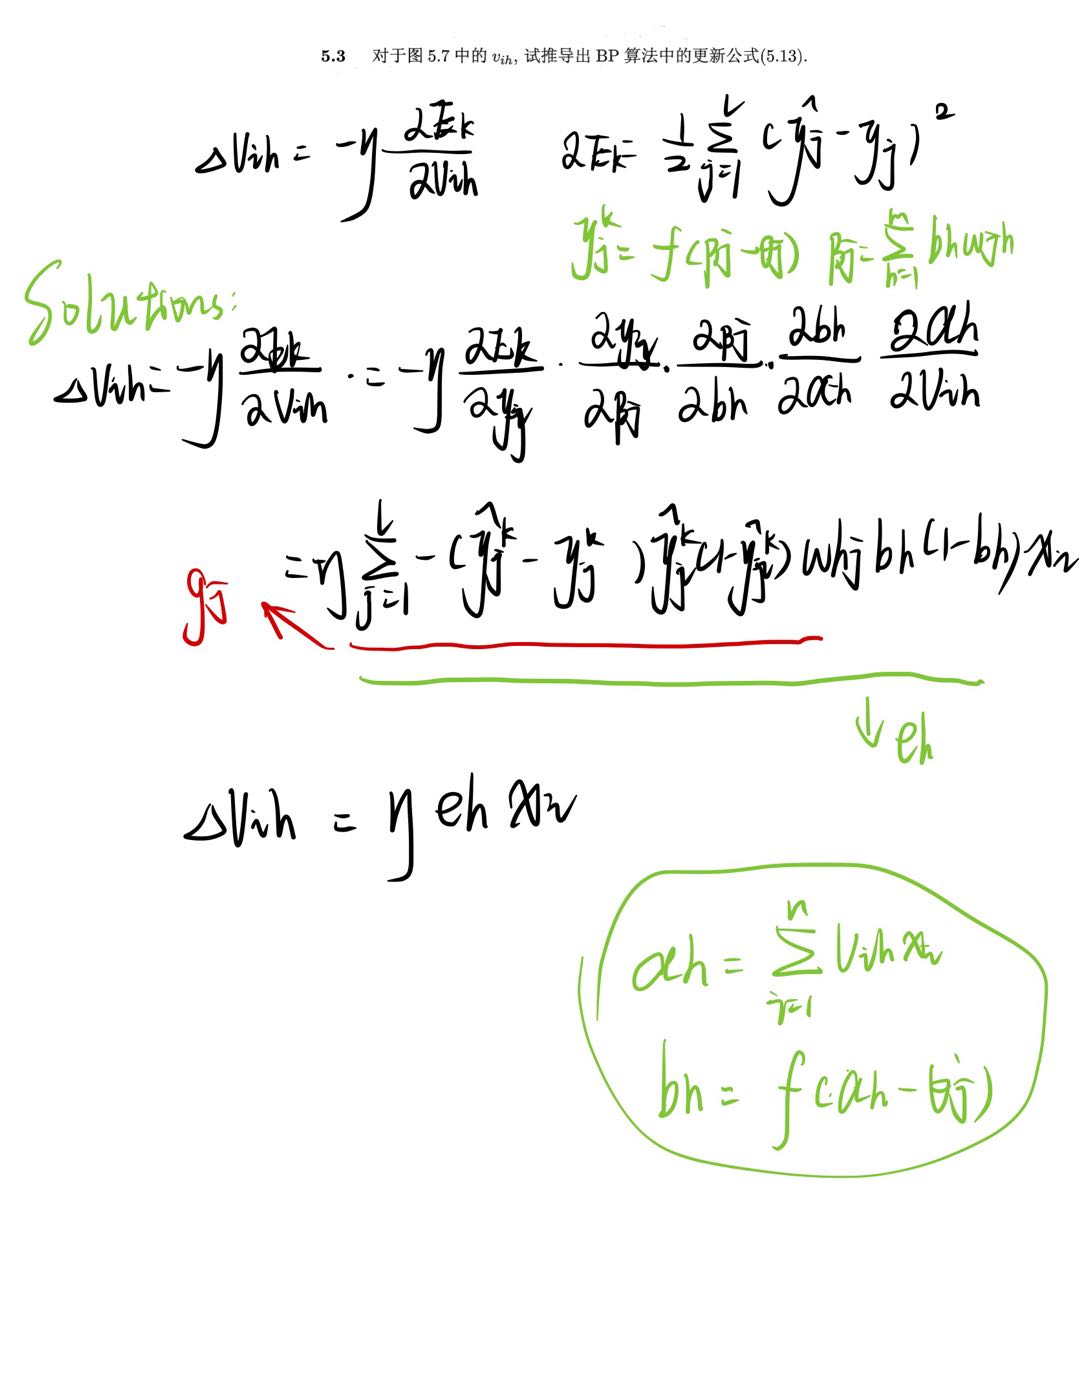 5.3 对于图 5.7 中的 v_{ih}, 试推导出 BP 算法中的更新公式(5.13).
ΔVih = -η ∂Ek/∂Vih   ∂Ek = 1/2 Σ_{j=1}^{l} (ŷj - yj)²
yj^k = f(βj - θj)   βj = Σ_{h=1}^{m} bh wjh
Solutions:
ΔVih = -η ∂Ek/∂Vih · = -η ∂Ek/∂yj · ∂yj/∂βj · ∂βj/∂bh · ∂bh/∂αh ∂αh/∂Vih
= η Σ_{j=1}^{l} -(ŷj^k - yj^k) ŷj^k (1-ŷj^k) whj bh (1-bh) xi
gj
eh
ΔVih = η eh xi
αh = Σ_{i=1}^{n} Vih xi
bh = f(αh - θj)